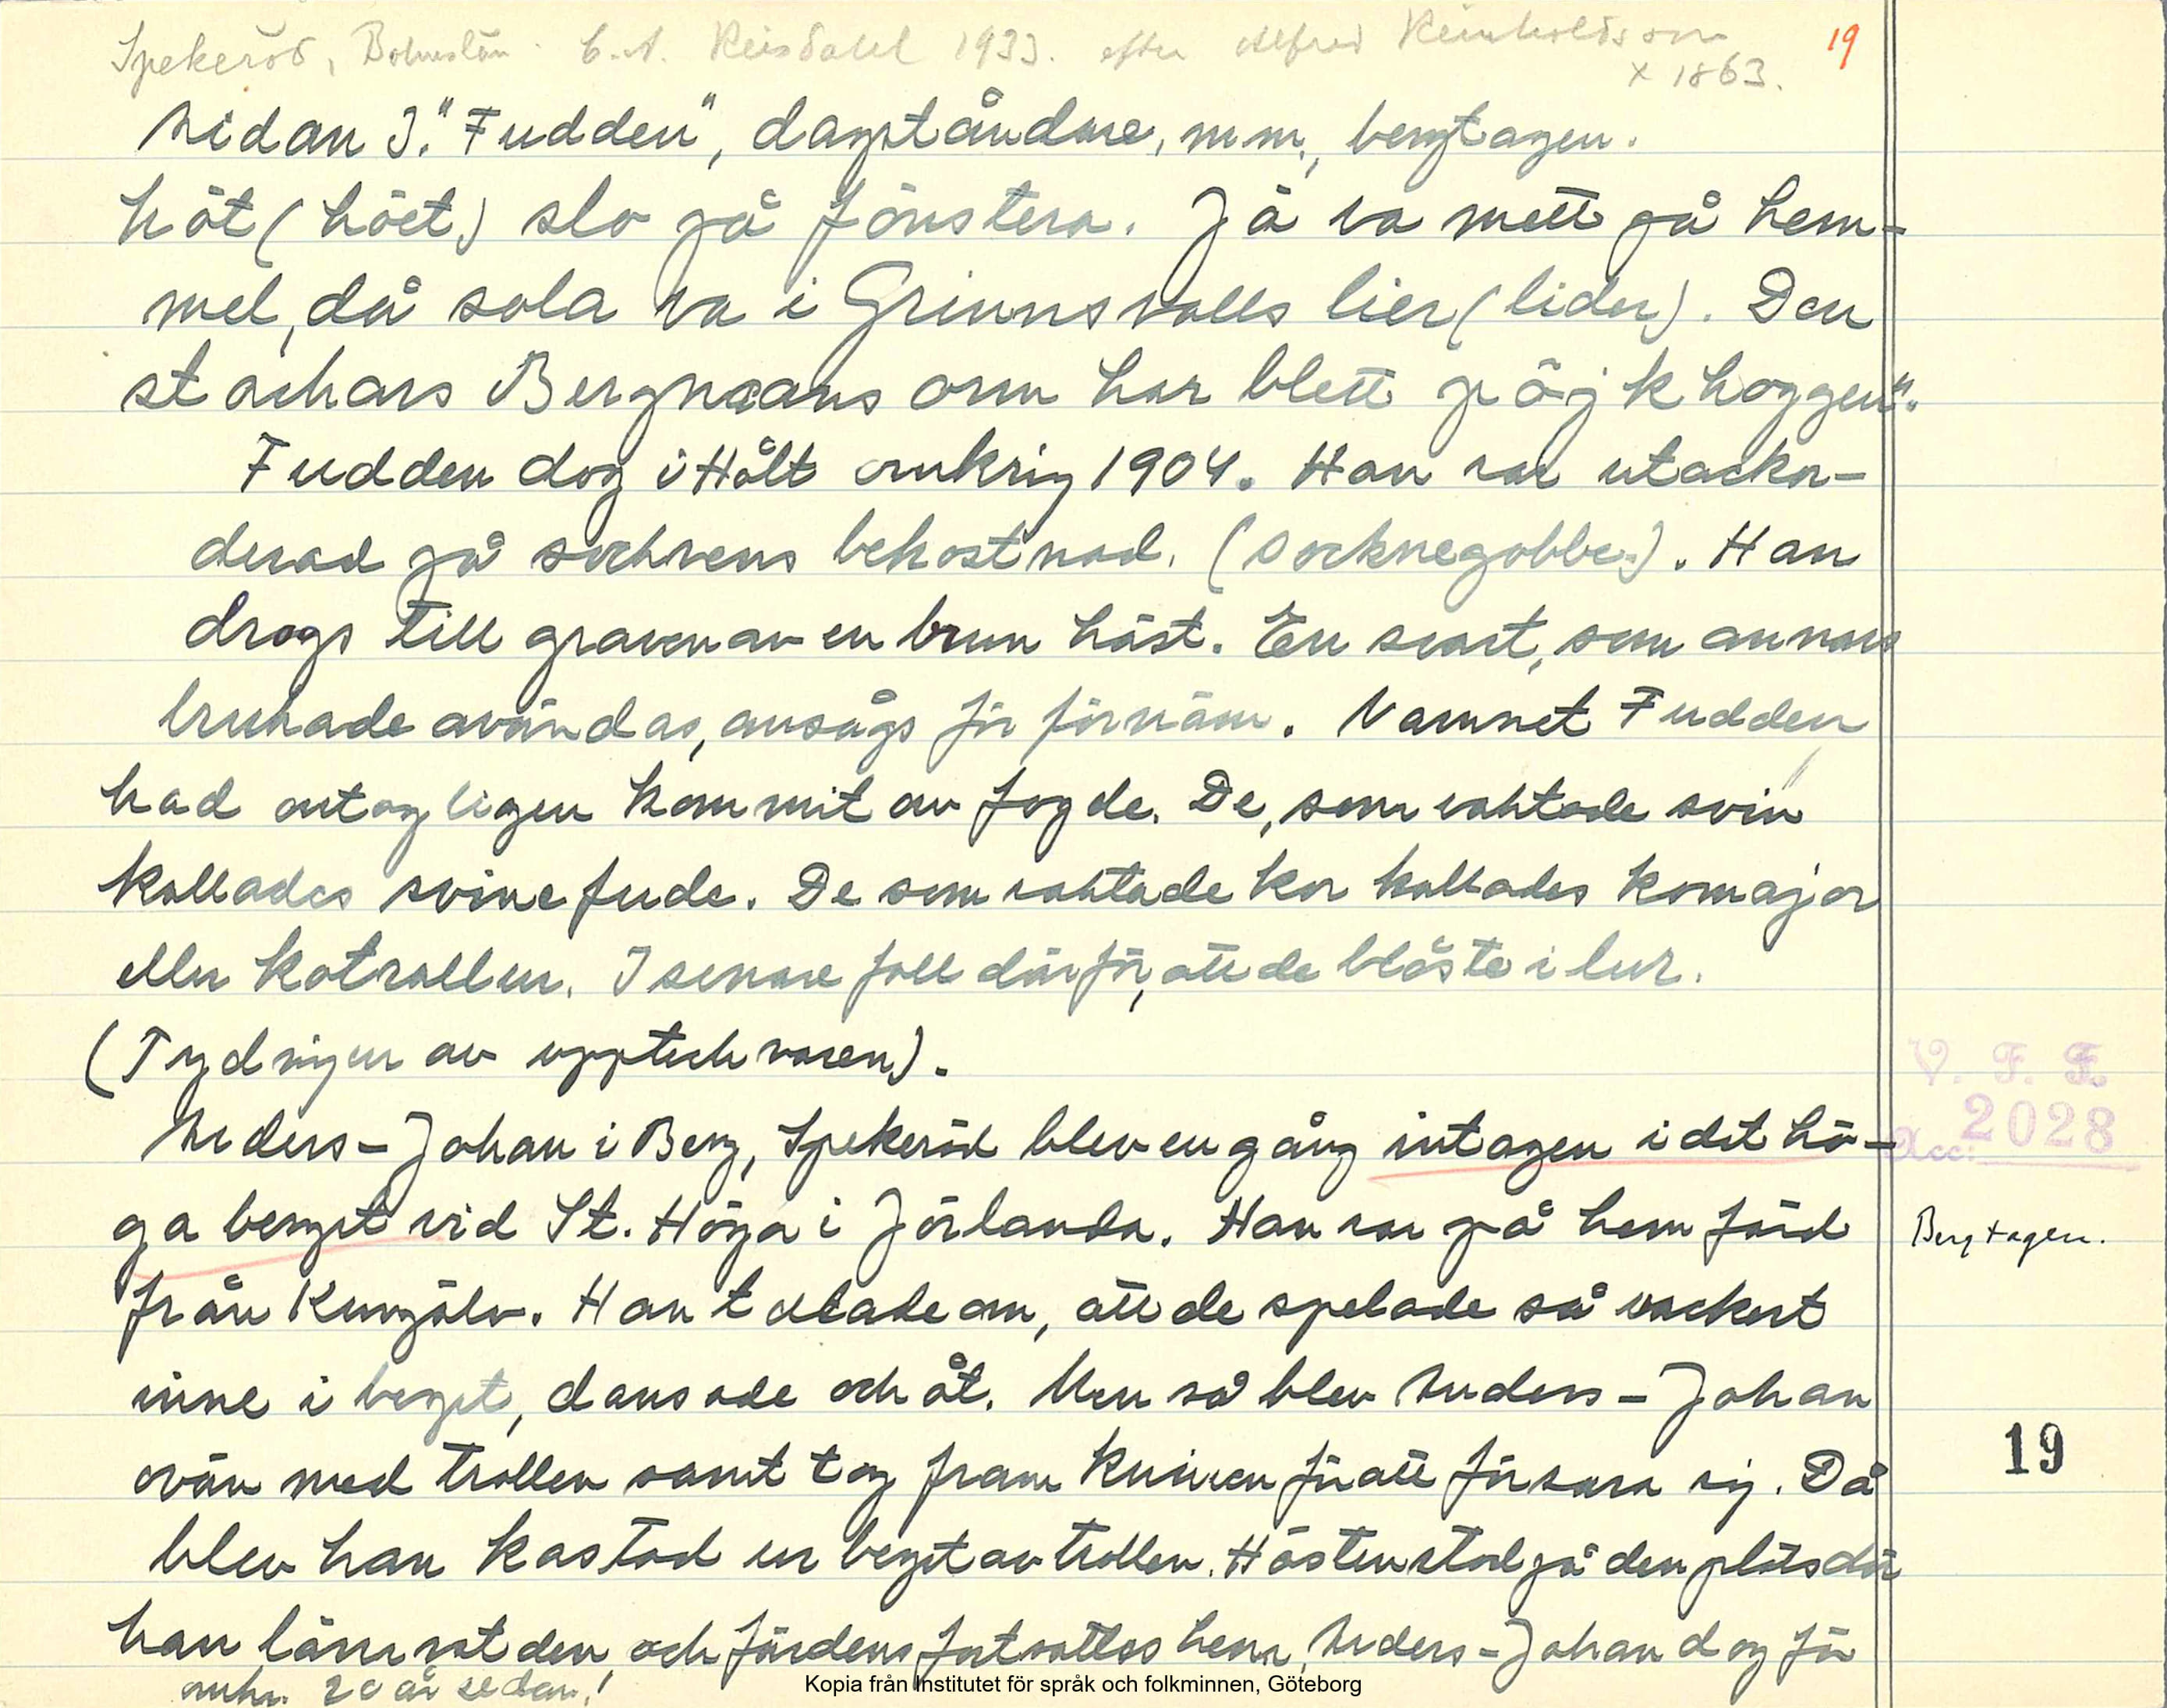 Spekeröd, Bohuslän. C.A. Reisdahl 1933. efter Alfred Reinholdsson
x 1863.
19
Sidan 3. "Fudden", dagståndare, m.m., bergtagen.
höt (höet) slo på fönstera. Jä va mett på hem-
mel, då sola va i Grinnsvalls lier (lider). Den
stackars Bergmans orm har blett påjkhoggen".
Fudden dog i Hålt omkring 1904. Han var utackor-
derad på socknens bekostnad. (Socknegobbe). Han
drogs till graven av en brun häst. En svart, som annars
brukade användas, ansågs för förnäm. Namnet Fudden
had antagligen kommit av fogde. De, som vaktade svin
kallades svinefude. De som vaktade kor kallades komajor
eller kotrallen. I senare fall därför, att de blåste i lur.
(Tydningen av upptecknaren).
Anders-Johan i Berg, Spekeröd blev en gång intagen i det hö-
ga berget vid St. Höga i Jörlanda. Han var på hemfärd
från Kungälv. Han talade om, att de spelade så vackert
inne i berget, dansade och åt. Men så blev Anders-Johan
ovän med trollen samt tog fram kniven för att försvara sig. Då
blev han kastad ur berget av trollen. Hästen stod på den plats där
han lämnat den, och färdens fortsattes hem. Anders-Johan dog för
omkr. 20 år sedan!
V. F. F.
Acc: 2028
Bergtagen.
19
Kopia från Institutet för språk och folkminnen, Göteborg